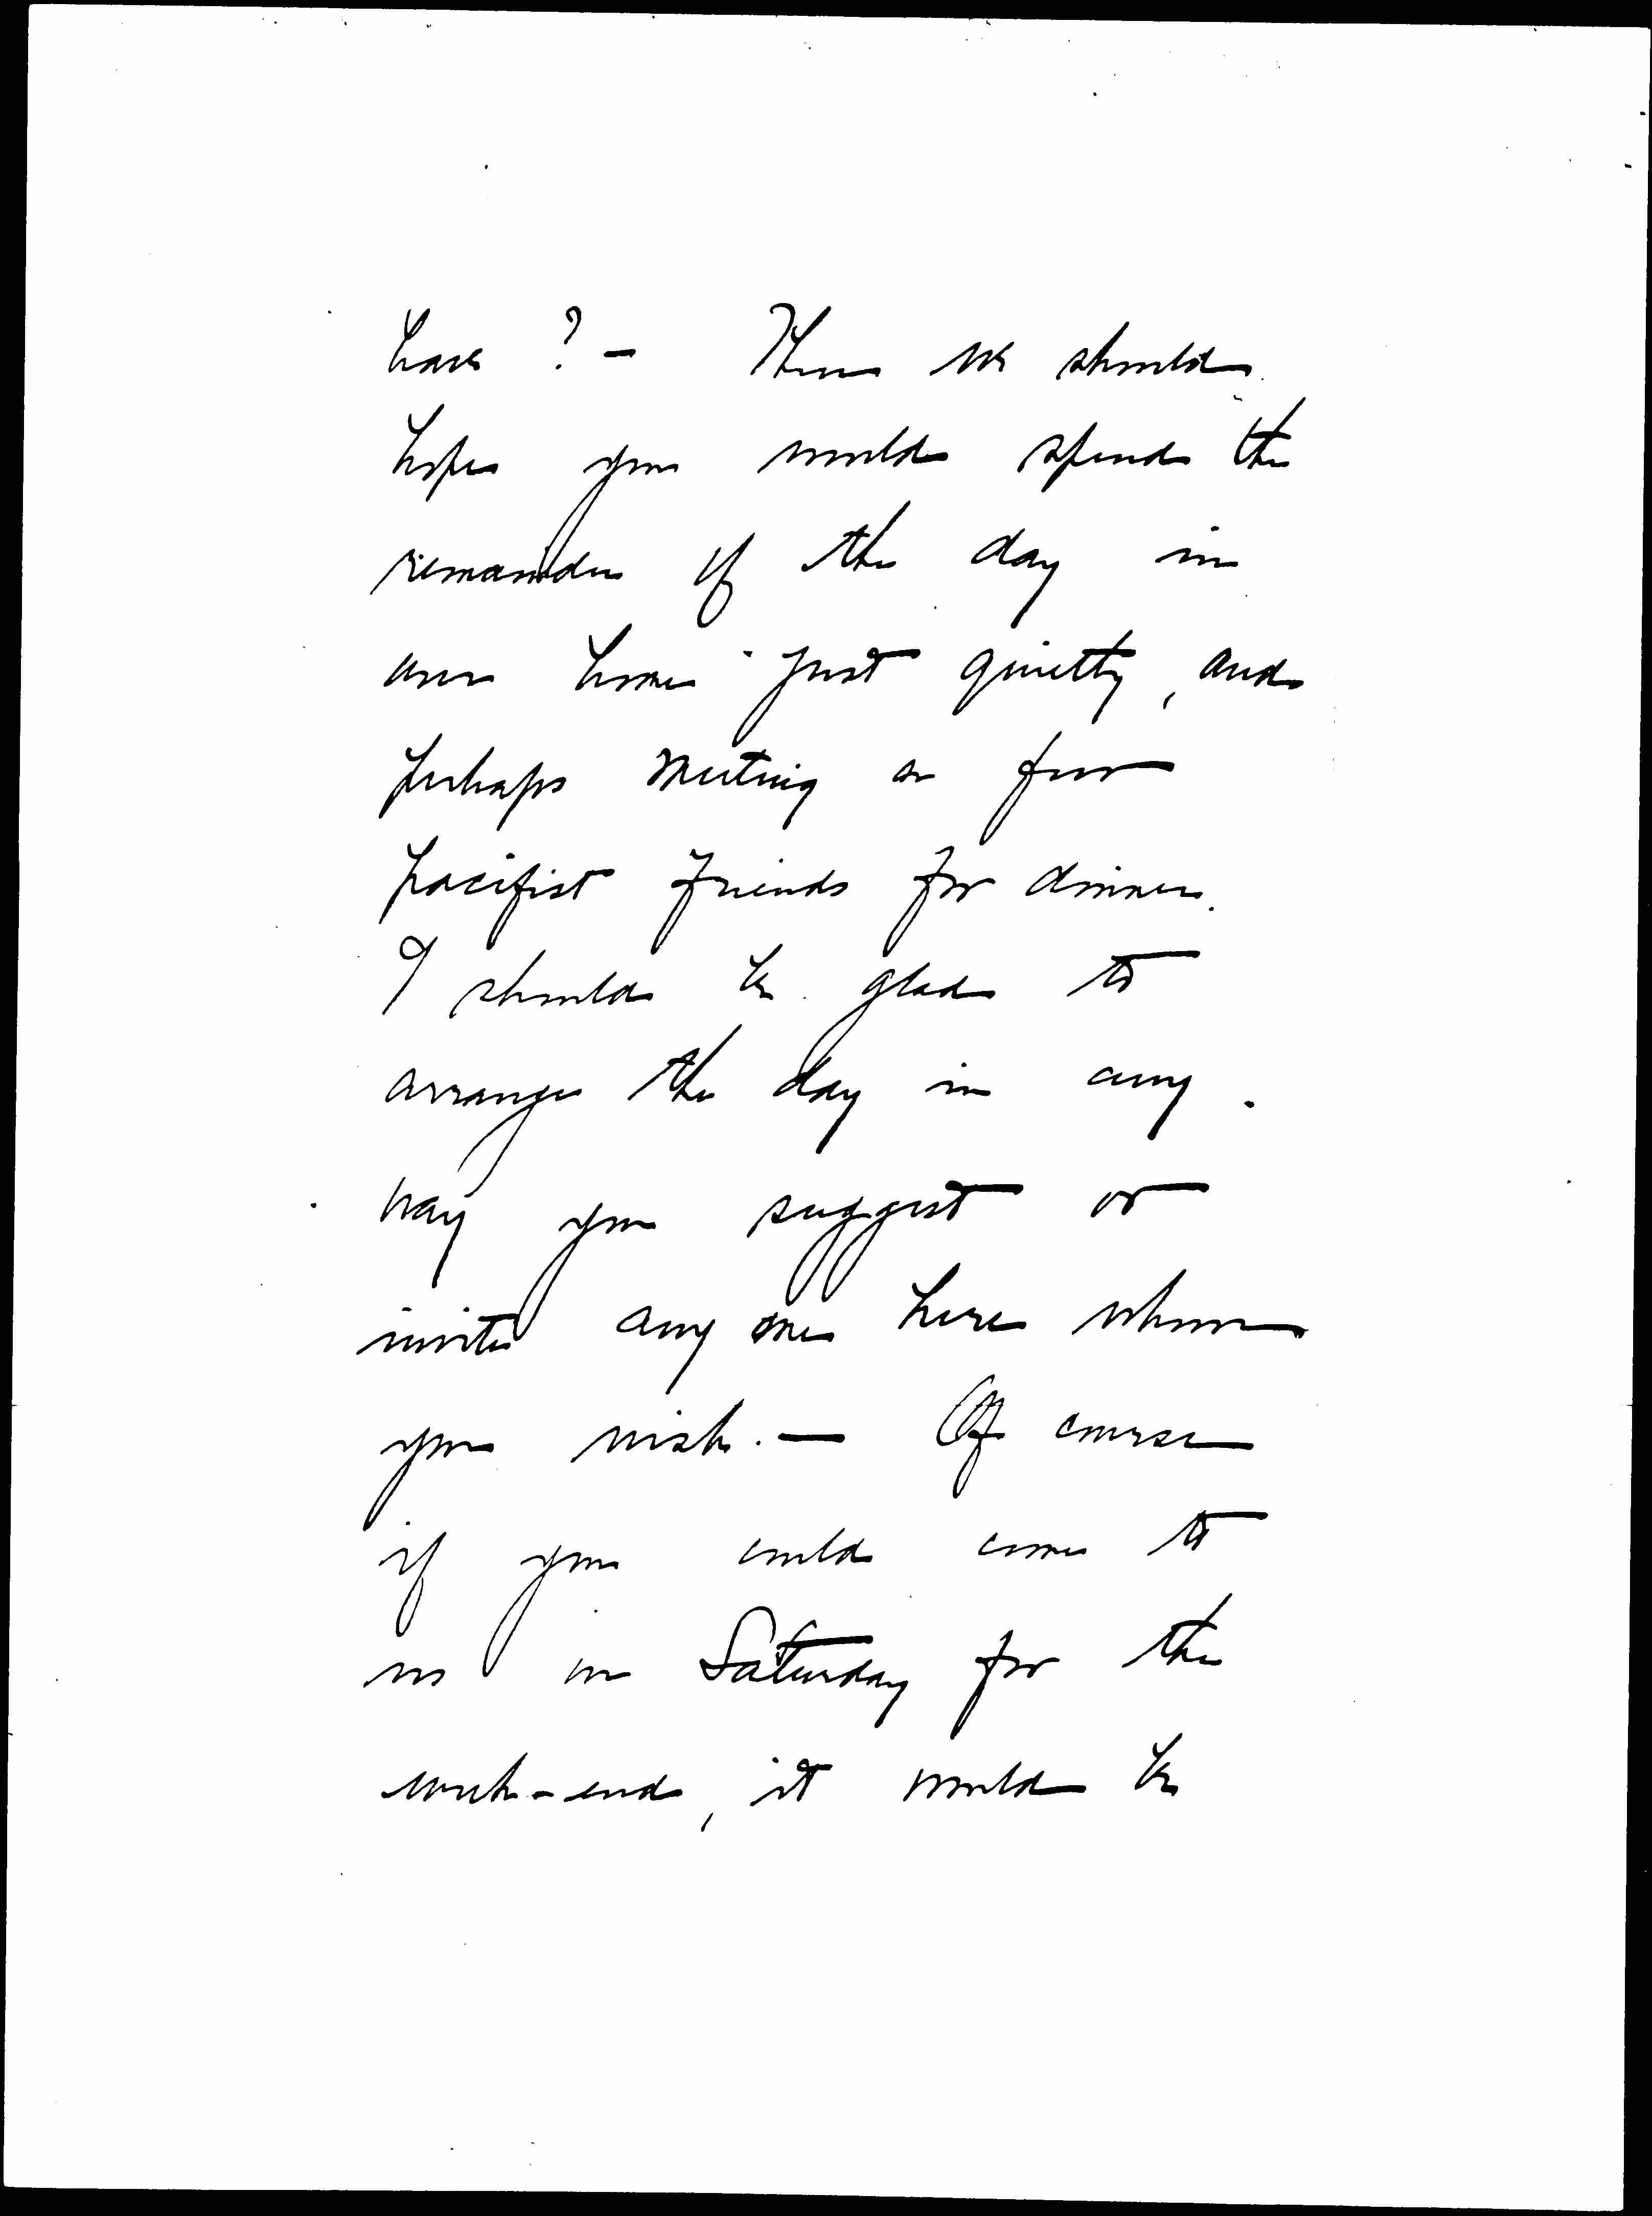 have ? – Then we should
hope you would spend the
remainder of the day in
our home just quietly, and
perhaps meeting a few
pacifist friends for dinner.
I should be glad to
arrange the day in any
way you suggest or
invite any one here whom
you wish. — Of course
if you could come to
us on Saturday for the
week-end, it would be